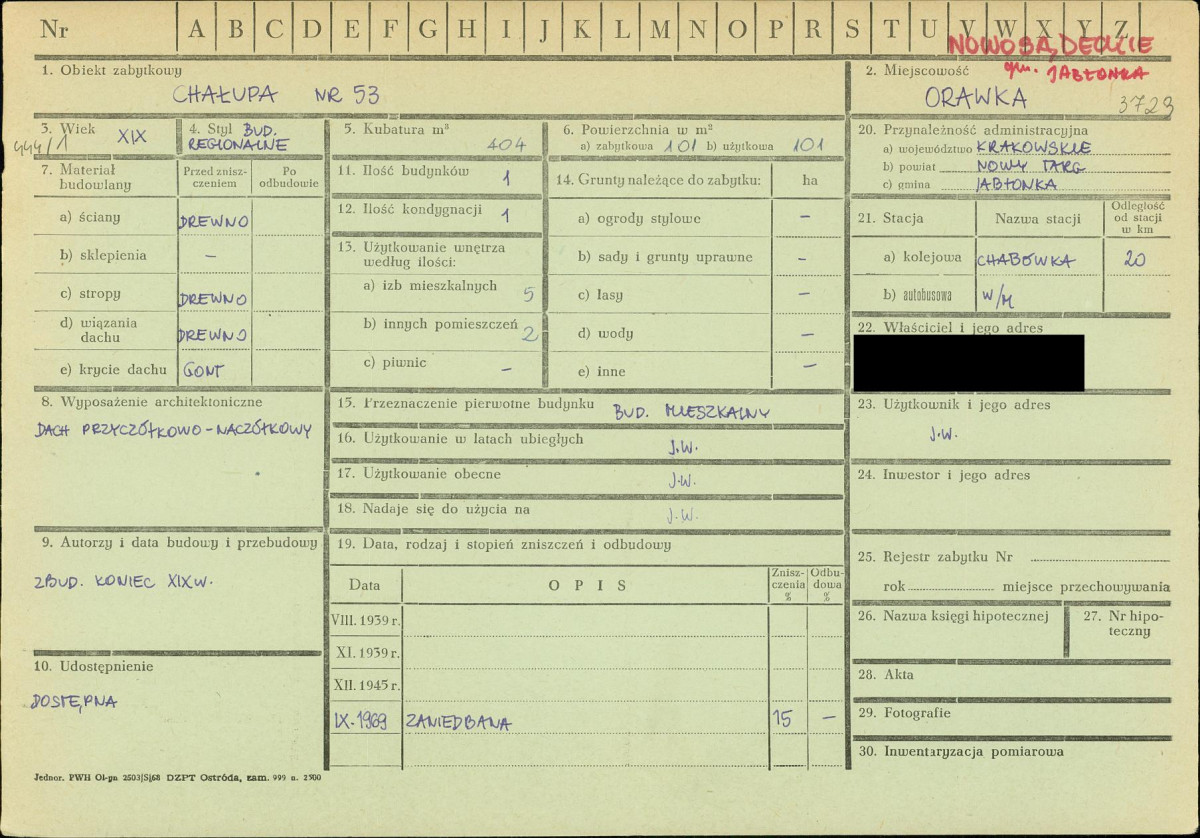 Nr A B C D E F G H I J K L M N O P R S T U V W X Y Z
NOWOSĄDECKIE
gm. JABŁONKA
1. Obiekt zabytkowy
CHAŁUPA NR 53
2. Miejscowość
ORAWKA
3723
3. Wiek XIX
444/1
4. Styl BUD.
REGIONALNE
5. Kubatura m³
404
6. Powierzchnia w m²
a) zabytkowa 101 b) użytkowa 101
7. Materiał budowlany
Przed zniszczeniem
Po odbudowie
a) ściany DREWNO
b) sklepienia –
c) stropy DREWNO
d) wiązania dachu DREWNO
e) krycie dachu GONT
8. Wyposażenie architektoniczne
DACH PRZYCZÓŁKOWO-NACZÓŁKOWY
9. Autorzy i data budowy i przebudowy
ZBUD. KONIEC XIX W.
10. Udostępnienie
DOSTĘPNA
11. Ilość budynków 1
12. Ilość kondygnacji 1
13. Użytkowanie wnętrza
według ilości:
a) izb mieszkalnych 5
b) innych pomieszczeń 2
c) piwnic –
14. Grunty należące do zabytku: ha
a) ogrody stylowe –
b) sady i grunty uprawne –
c) lasy –
d) wody –
e) inne –
15. Przeznaczenie pierwotne budynku BUD. MIESZKALNY
16. Użytkowanie w latach ubiegłych J.W.
17. Użytkowanie obecne J.W.
18. Nadaje się do użycia na J.W.
19. Data, rodzaj i stopień zniszczeń i odbudowy
Data OPIS Zniszczenia % Odbudowa %
VIII. 1939 r.
XI. 1939 r.
XII. 1945 r.
IX-1969 ZANIEDBANA 15 –
20. Przynależność administracyjna
a) województwo KRAKOWSKIE
b) powiat NOWY TARG
c) gmina JABŁONKA
21. Stacja Nazwa stacji Odległość od stacji w km
a) kolejowa CHABÓWKA 20
b) autobusowa W/M
22. Właściciel i jego adres
23. Użytkownik i jego adres
J.W.
24. Inwestor i jego adres
25. Rejestr zabytku Nr
rok miejsce przechowywania
26. Nazwa księgi hipotecznej
27. Nr hipoteczny
28. Akta
29. Fotografie
30. Inwentaryzacja pomiarowa
Jednor. PWH Ol-pn 2503/S/68 DZPT Ostróda, zam. 999 n. 2500